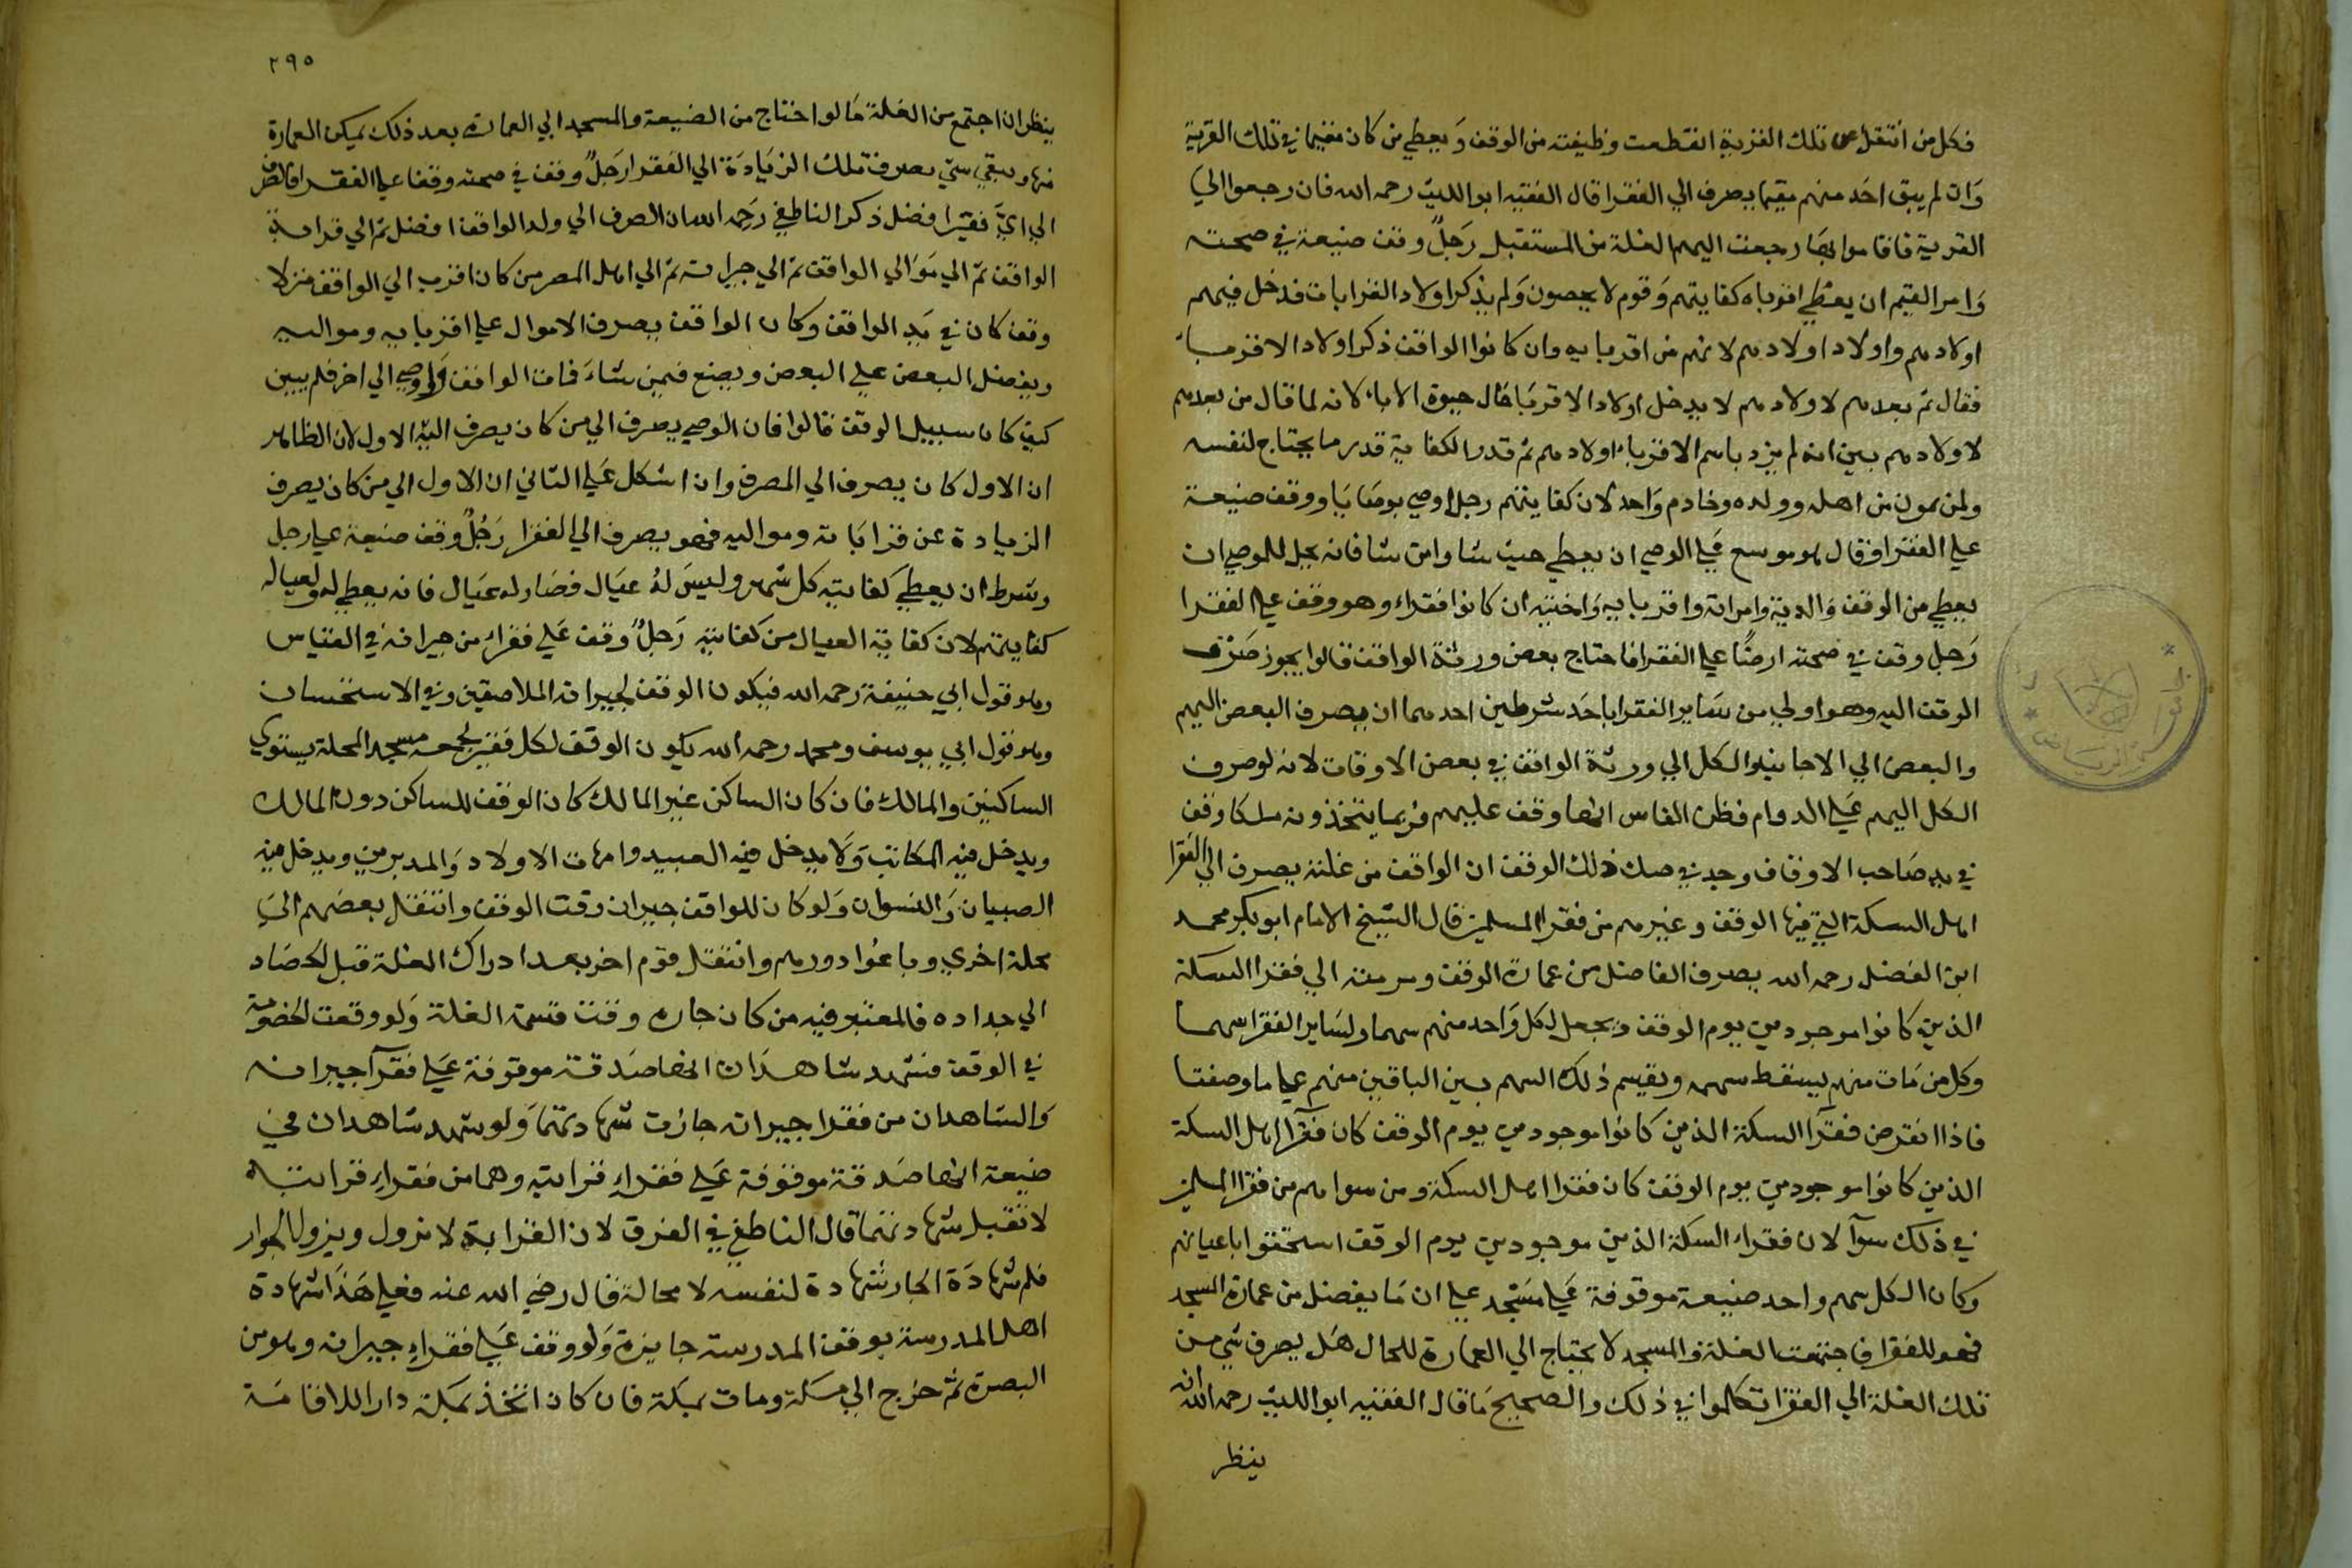 فكل من انتقل عن تلك القرية انقطعت وظيفته من الوقف وَيعطي من كان مقيما في تلك القرية
وَان لم يبق احَد منهم مقيما يصرف الي الفقرا قال الفقيه ابو الليث رحمه الله فان رجعوا الي
القرية فاقاموا بها رجعت اليهم الغلة من المستقبل رَجلٌ وقف ضيعة في صحته
وَامر القيم ان يعطي اقرباه كفايتهم وَقوم لا يحصون وَلم يذكر اولاد القرابات فدخل فيهم
اولادهم واولاد اولادهم لانهم من اقربايه وان كانوا الواقف ذكر اولاد الاقرباء
فقال ثم بعدهم لاولادهم لا يدخل اولاد الاقربا حَال حيوة الاباء لانه لما قال من بعدهم
لاولادهم بين انه لم يرد باسم الاقرباء اولادهم ثم قدر الكفاية قدر ما يحتاج لنفسه
ولمن يمون من اهله وولده وخادم وَاحد لان كفايتهم رجل اوصي بوصَايَا ووقف ضيعة
علي الفقرا وقال هو موسع عَلي الوصي ان يعطي حيث شا وامن شا فانه يحل للموصي ان
يعطي من الوقف وَالديه وامراته واقربايه وَاختيه ان كانوا فقراء وهو وقف علي الفقرا
رَجل وقف في صحته ارضًا علي الفقرا فاحتاج بعض ورثة الواقف قالوا يجوز صَرْف
الوقف اليه وهو اولي من سَاير الفقرا باحَد شرطين احدهما ان يصرف البعض اليهم
والبعض الي الاجانب والكل الي ورثة الواقف في بعض الاوقات لانه لو صرف
الكل اليهم عَلي الدوام فظن الناس انها وقف عليهم فربما يتخذونه ملكا وقف
في يد صَاحب الاوقاف وجد في صك ذلك الوقف ان الواقف من غلته يصرف الي الفقرا
اهل السكة التي فيها الوقف وغيرهم من فقرا المسلمين قال الشيخ الامام ابو بكر محمد
ابن الفضل رحمه الله يصرف الفاضل من عمارة الوقف ومرمته الي فقرا السكة
الذين كانوا موجودين يوم الوقف ويجعل لكل وَاحد منهم سهما ولسَاير الفقرا سهما
وكل من مَات منهم يسقط سهمه ويقسم ذلك السهم بين الباقين منهم علي ما وصفنا
فاذا انقرض فقرآ السكة الذين كانوا موجودين يوم الوقف كان فقرآ اهل السكة
الذين كانوا موجودين يوم الوقف كان فقرا اهل السكة ومن سواهم من فقرا المسلمين
في ذلك سوآ لان فقراء السكة الذين موجودين يوم الوقف استحقوا باعيانهم
وكان الكل سهم واحد ضيعة موقوفة عَلي مسْجد علي ان مَا يفضل من عمارة المسجد
فهو للفقرا فاجتمعت الغلة والمسجد لا يحتاج الي العمارة للحال هَل يصرف شي من
تلك الغلة الي الفقرا تكلموا في ذلك والصحيح مَا قال الفقيه ابو الليث رحمه الله انه
ينظر
٢٩٥
ينظر ان اجتمع من الغلة مَا لو احتاج من الضيعة والمسجد الي العمارة بعد ذلك يمكن العمارة
منها ويبقي شي يصرف تلك الزيَادَة الي الفقرا رَجلٌ وقف في صحته وقفا علي الفقرا فالصرف
الي ايَّ فقيرا فضل ذكر الناطفي رَحمه الله ان الصرف الي ولد الواقف افضل ثم الي قرابة
الواقف ثم الي مَوَالي الواقف ثم الي جيرانه ثم الي اهل المصر من كان اقرب الي الواقف منزلا
وقف كان في يَد الواقف وكان الواقف يصرف الاموال علي اقربايه ومواليه
ويفضل البعض علي البعض ويصنع فيمن شاءَ فمات الواقف وَاوصي الي اخر فلم يبين
كيف كان سبيل الوقف قالوا فان الوصي يصرف الي من كان يصرف اليه الاول لان الظاهر
ان الاول كان يصرف الي المصرف وان اشكل عَلي الثاني ان الاول الي من كان يصرف
الزيادة عن قرابَاته ومواليه فهو يصرف الي الفقرا رَجُلٌ وقف ضيعة علي رجل
وشرط ان يعطي كفايته كل شهر وليسَ لهُ عيَال فصَار له عيَال فانه يعطي له ولعياله
كفايتهم لان كفاية العيال من كفايته رَجلٌ وقف عَلي فقراء من جيرانه في القياس
وهو قول ابي حنيفة رحمه الله فيكون الوقف لجيرانه الملاصقين وفي الاستحسان
وهو قول ابي يوسف ومحمد رحمه الله يكون الوقف لكل فقير يجمعه مسجد المحلة يستوي
الساكنين والمالك فان كان الساكن غير المالك كان الوقف للساكن دون المالك
ويدخل فيه المكاتب وَلا يدخل فيه العبيد وامهات الاولاد وَالمدبرين ويدخل فيه
الصبيان وَالنسوان وَلو كان للواقف جيران وقت الوقف وانتقل بعضهم الي
محلة اخري وباعُوا دورهم وانتقل قوم اخر بعد ادراك الغلة قبل الحصَاد
الي جداده فالمعتبر فيه من كان جاره وقت قسمة الغلة وَلو وقعت الخصومة
في الوقف فشهد شاهدَان انها صَدقة موقوفة عَلي فقرآ جيرانه
وَالشاهدان من فقرا جيرانه جازت شهادتهما وَلو شهد شاهدان في
ضيعة انها صَدقة موقوفة عَلي فقراءِ قرابته وهما من فقراءِ قرابته
لا تقبل شهادتهما قال الناطفي في الفرق لان القرابة لا تزول ويزول الجوار
فلم شهادَة الجار شهادة لنفسه لا محالة قال رضي الله عنه فعلي هَذَا شهادة
اهل المدرسة بوقف المدرسة جايزة وَلو وقف عَلي فقراءِ جيرانه وهو من
البصرة ثم خرج الي مكة ومات بمكة فان كان اتخذ بمَكة دارا للاقامَة